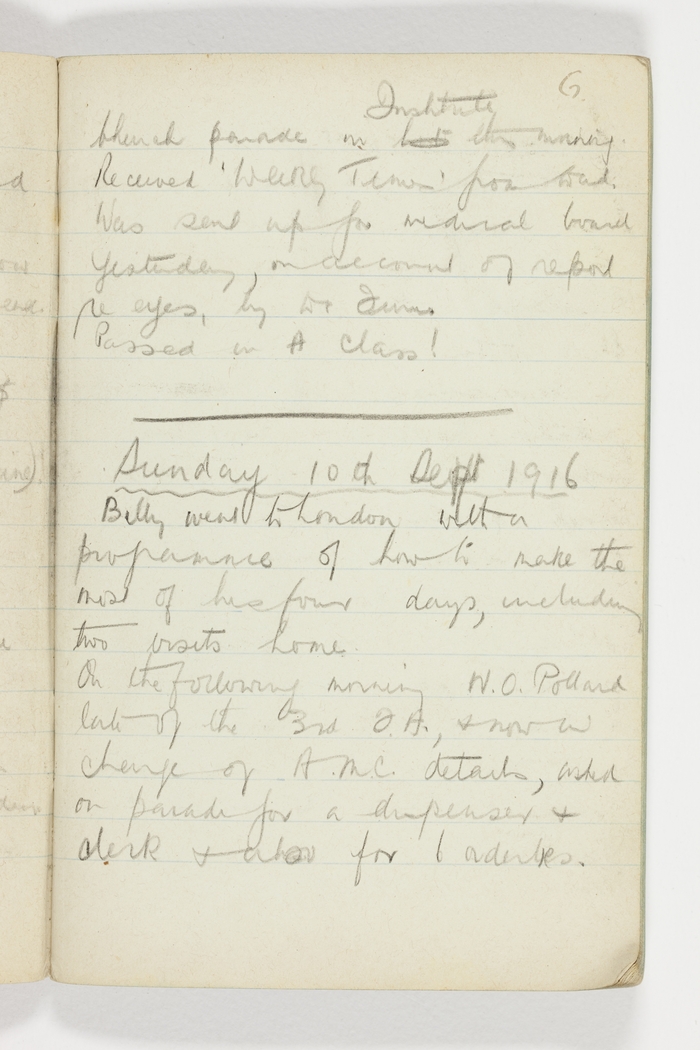 6
Institute
Church parade in hut this morning.
Received 'Weekly Times' from
Was sent up for medical board
yesterday, on account of report
re eyes, by Dr
Passed in A Class!
Sunday 10th Sept 1916
Billy went to London with a
programme of how to make the
most of his four days, including
two visits home.
On the following morning W.O. Pollard
late of the 3rd F.A., & now in
charge of A.M.C. details, asked
on parade for a dispenser &
clerk & also for 6 orderlies.